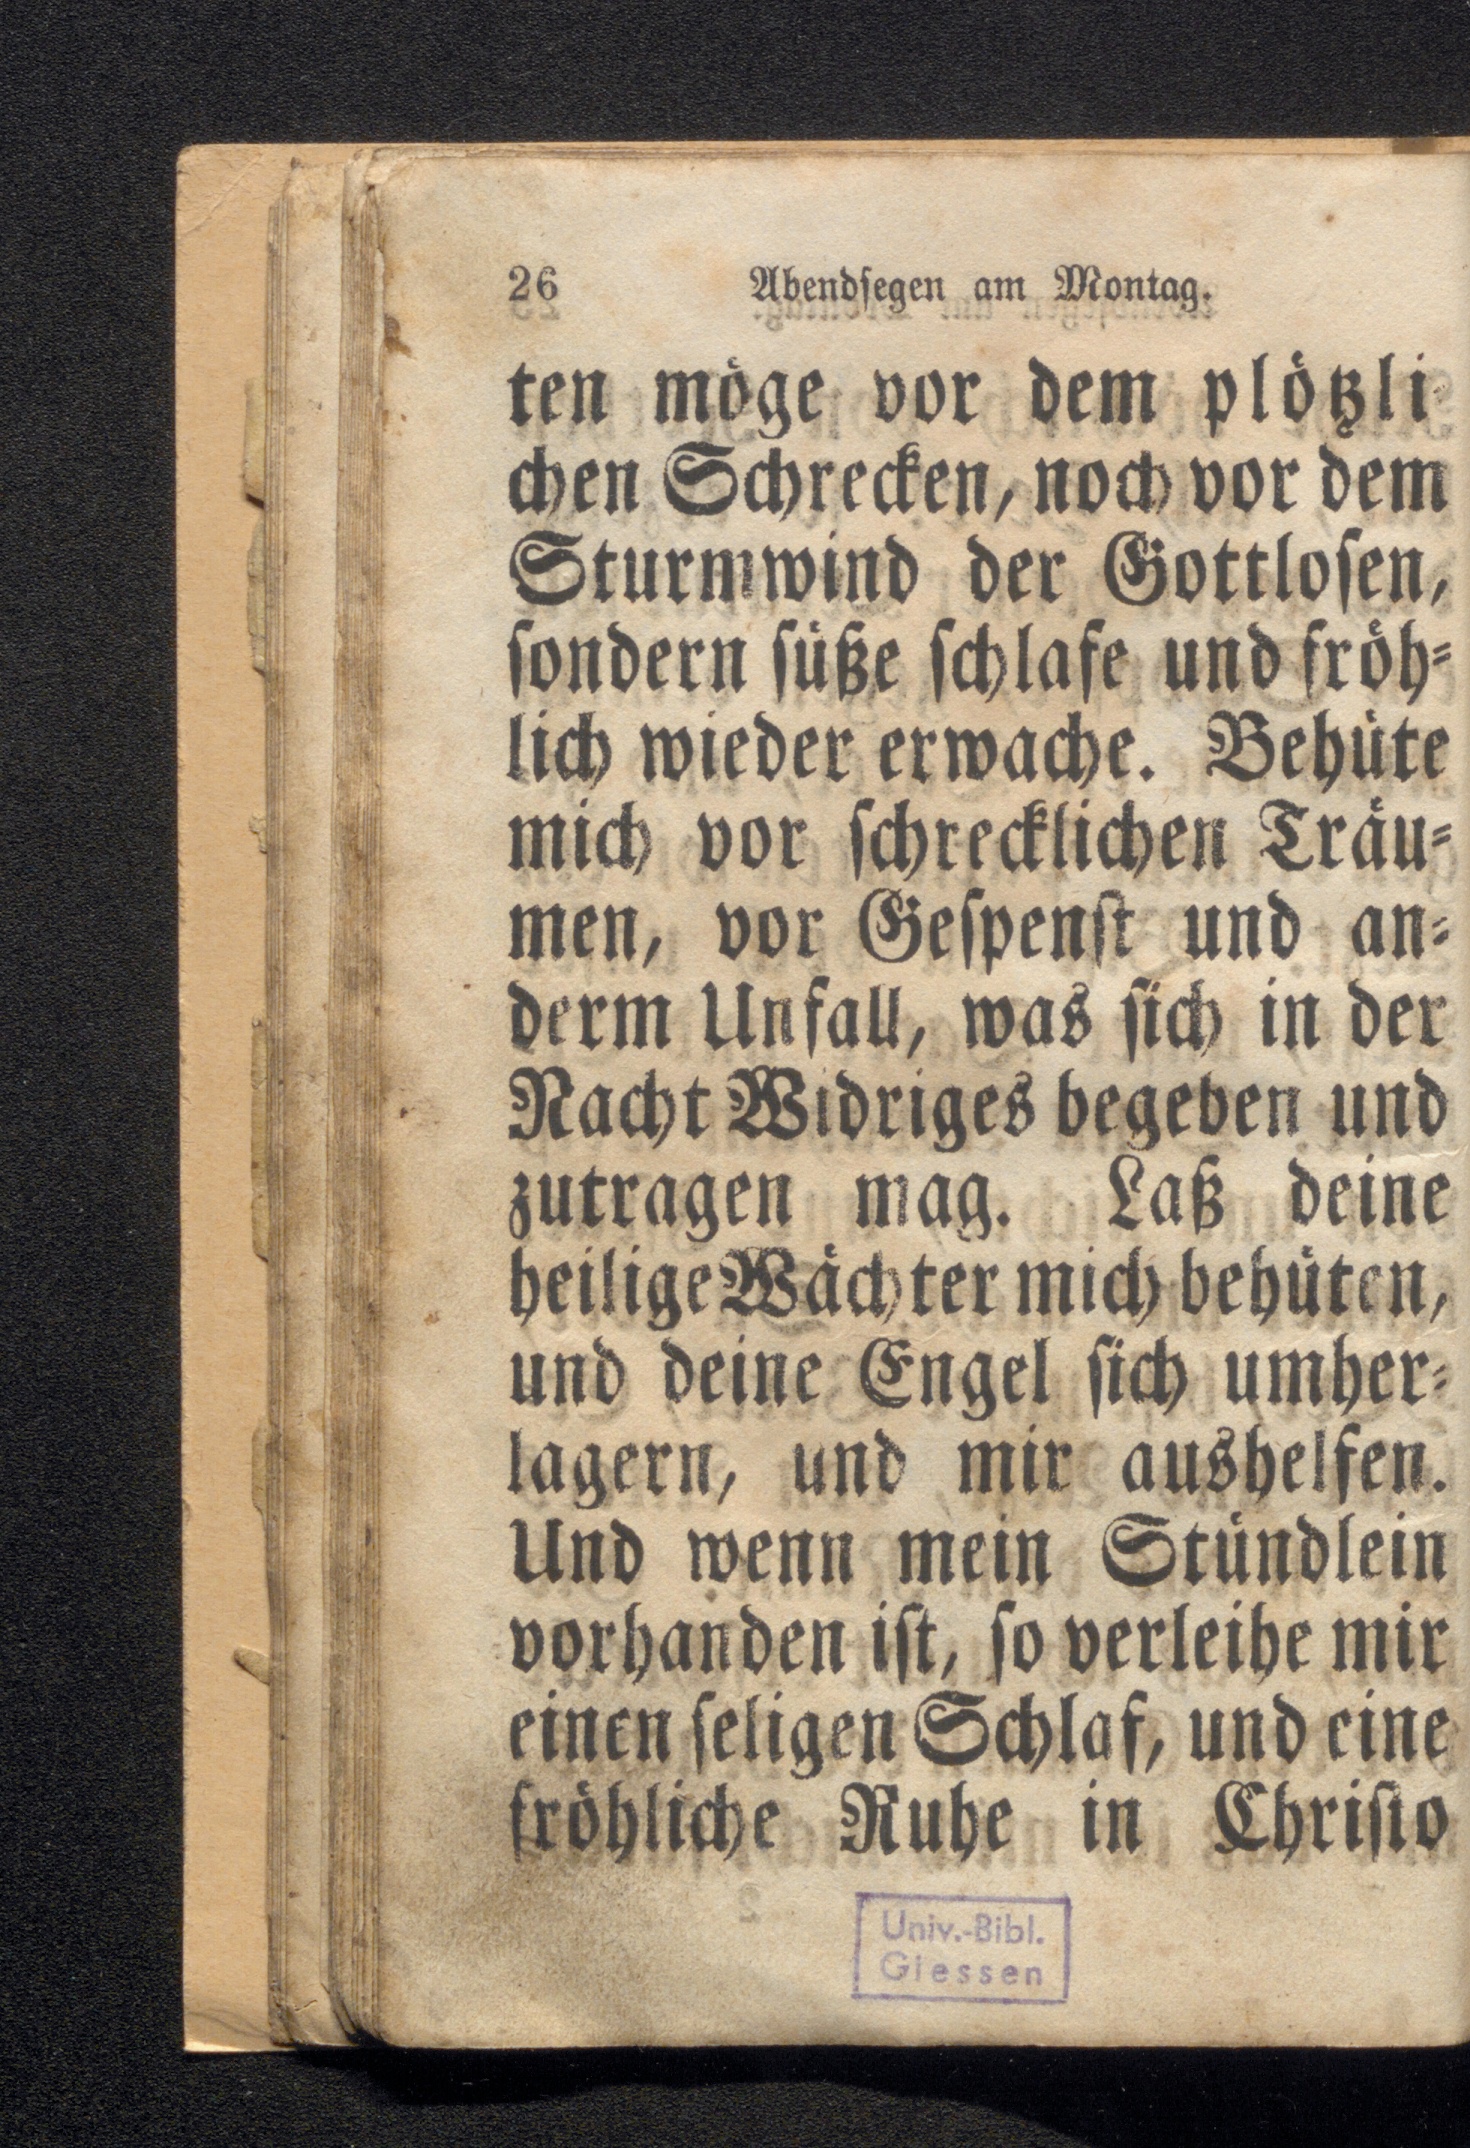 26 Abendsegen am Montag.
ten möge vor dem plötzli-
chen Schrecken, noch vor dem
Sturmwind der Gottlosen,
sondern süße schlafe und fröh-
lich wieder erwache. Behüte
mich vor schrecklichen Träu-
men, vor Gespenst und an-
derm Unfall, was sich in der
Nacht Widriges begeben und
zutragen mag. Laß deine
heilige Wächter mich behüten,
und deine Engel sich umher-
lagern, und mir aushelfen.
Und wenn mein Stündlein
vorhanden ist, so verleihe mir
einen seligen Schlaf, und eine
fröhliche Ruhe in Christo
Univ.-Bibl.
Giessen